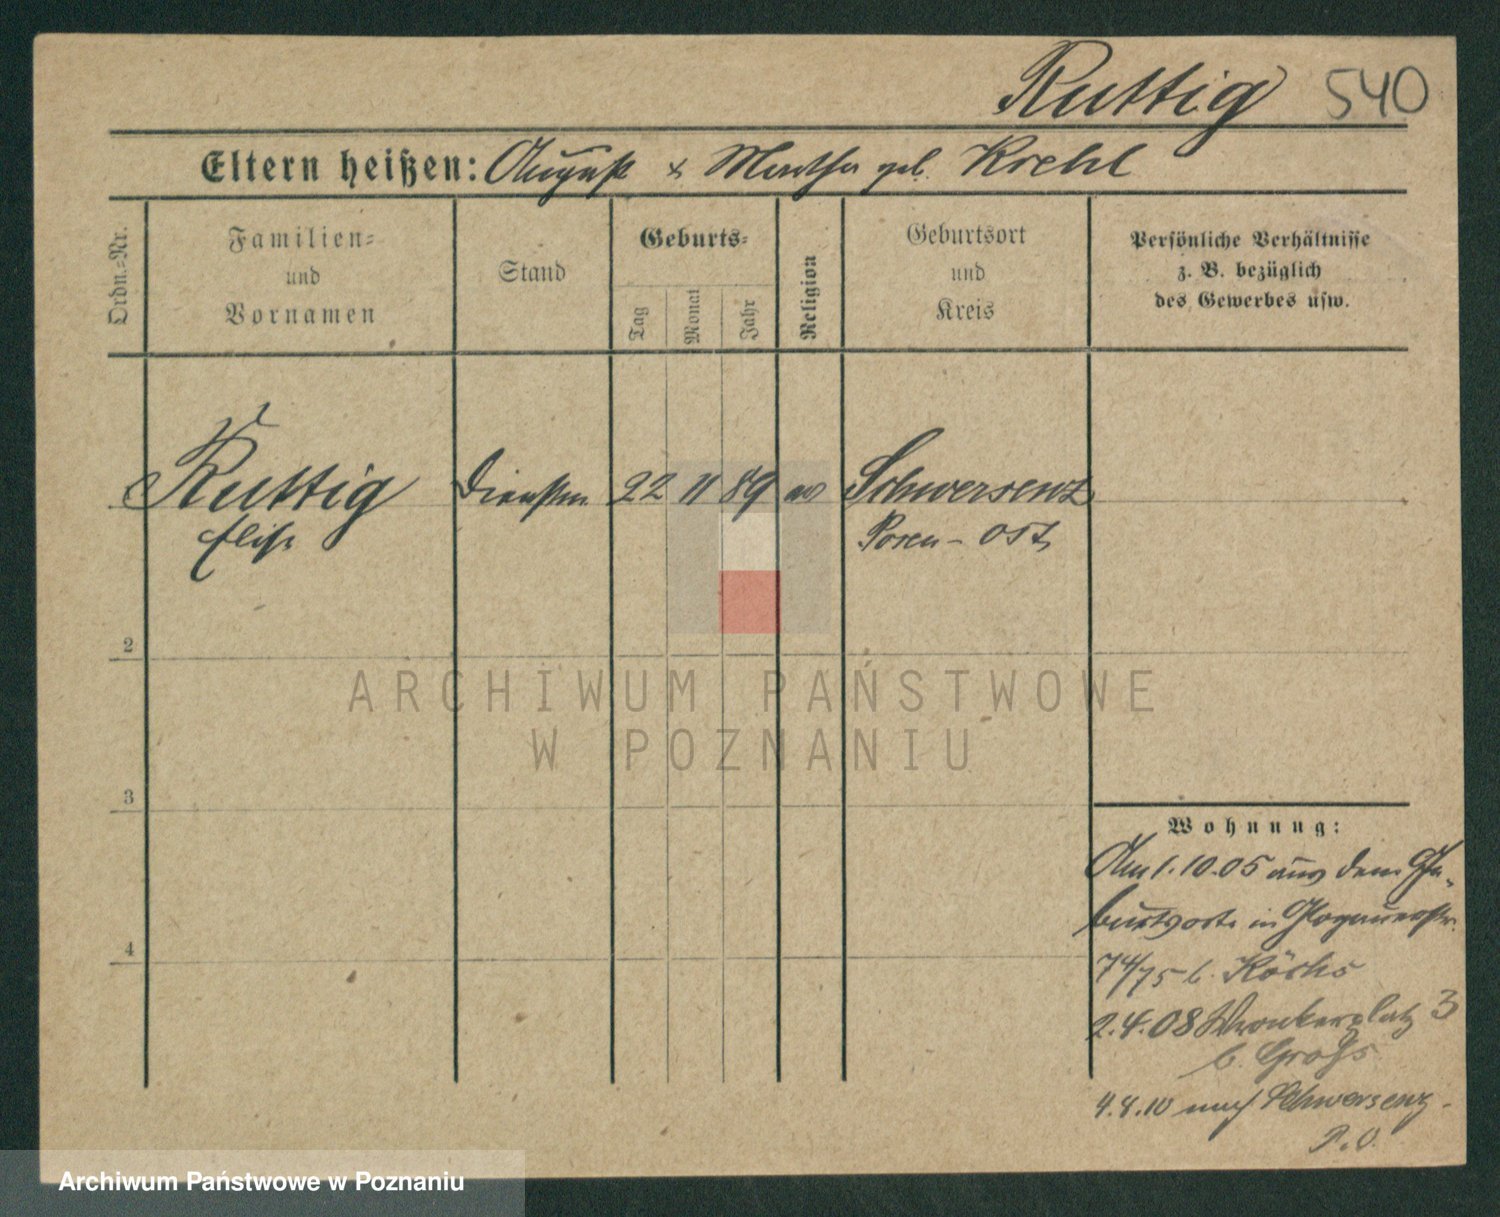 Ruttig 540
Eltern heißen: August u Martha geb. Krehl
Ordn.=Nr.
Familien=
und
Vornamen
Stand
Geburts=
Tag
Monat
Jahr
Religion
Geburtsort
und
Kreis
Persönliche Verhältnisse
z. B. bezüglich
des Gewerbes usw.
Ruttig Dienstm. 22 11 89 ev Schwersenz
Elise Posen - Ost
2
3
4
Wohnung:
Am 1.10.05 aus dem Ge-
burtsorte in Glogauerstr.
74/75 b.
2.4.08 Wronkerplatz 3
b. Groß
4.4.10 nach Schwersenz.
P. O.
ARCHIWUM PAŃSTWOWE
W POZNANIU
Archiwum Państwowe w Poznaniu